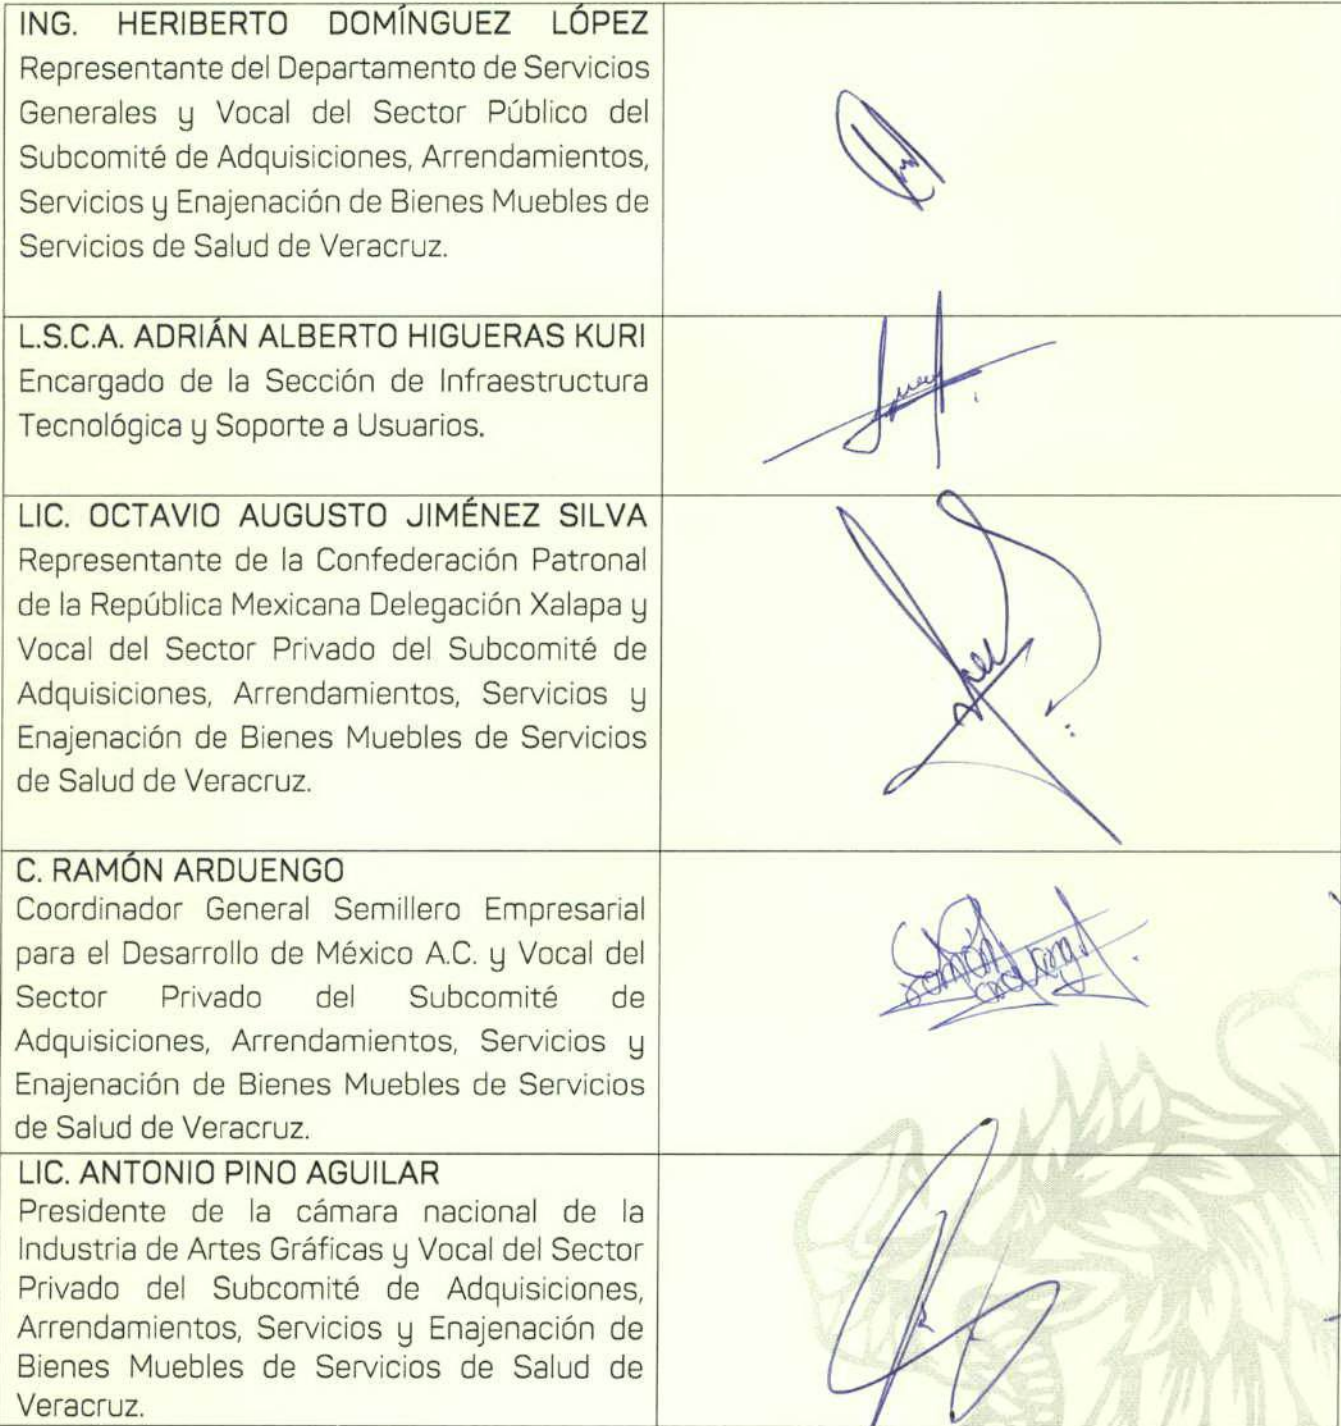 ING. HERIBERTO DOMÍNGUEZ LÓPEZ
Representante del Departamento de Servicios
Generales y Vocal del Sector Público del
Subcomité de Adquisiciones, Arrendamientos,
Servicios y Enajenación de Bienes Muebles de
Servicios de Salud de Veracruz.
L.S.C.A. ADRIÁN ALBERTO HIGUERAS KURI
Encargado de la Sección de Infraestructura
Tecnológica y Soporte a Usuarios.
LIC. OCTAVIO AUGUSTO JIMÉNEZ SILVA
Representante de la Confederación Patronal
de la República Mexicana Delegación Xalapa y
Vocal del Sector Privado del Subcomité de
Adquisiciones, Arrendamientos, Servicios y
Enajenación de Bienes Muebles de Servicios
de Salud de Veracruz.
C. RAMÓN ARDUENGO
Coordinador General Semillero Empresarial
para el Desarrollo de México A.C. y Vocal del
Sector Privado del Subcomité de
Adquisiciones, Arrendamientos, Servicios y
Enajenación de Bienes Muebles de Servicios
de Salud de Veracruz.
LIC. ANTONIO PINO AGUILAR
Presidente de la cámara nacional de la
Industria de Artes Gráficas y Vocal del Sector
Privado del Subcomité de Adquisiciones,
Arrendamientos, Servicios y Enajenación de
Bienes Muebles de Servicios de Salud de
Veracruz.